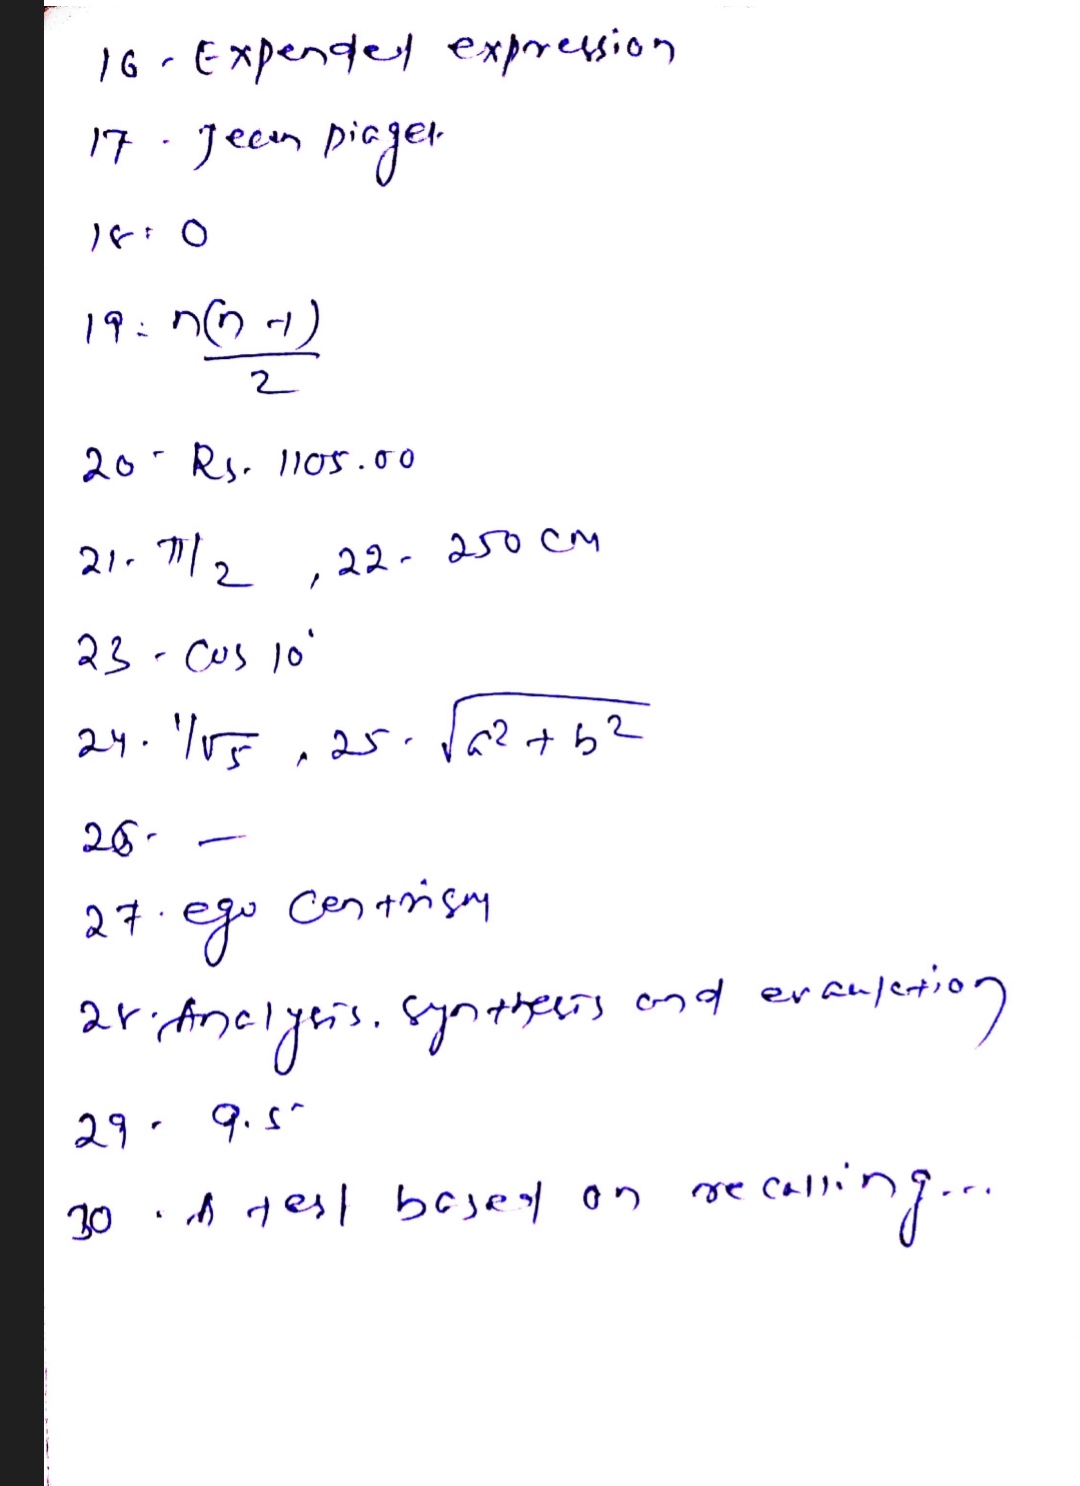 16 - Expended expression
17 - Jean piaget
18: 0
19: n(n-1)/2
20 - Rs. 1105.00
21. π/2 , 22 - 250 cm
23 - Cos 10°
24. 11/√5 , 25. √a²+b²
26 - —
27. ego centrism
28. Analysis, synthesis and evaluation
29. 9.5
30. A test based on recalling...